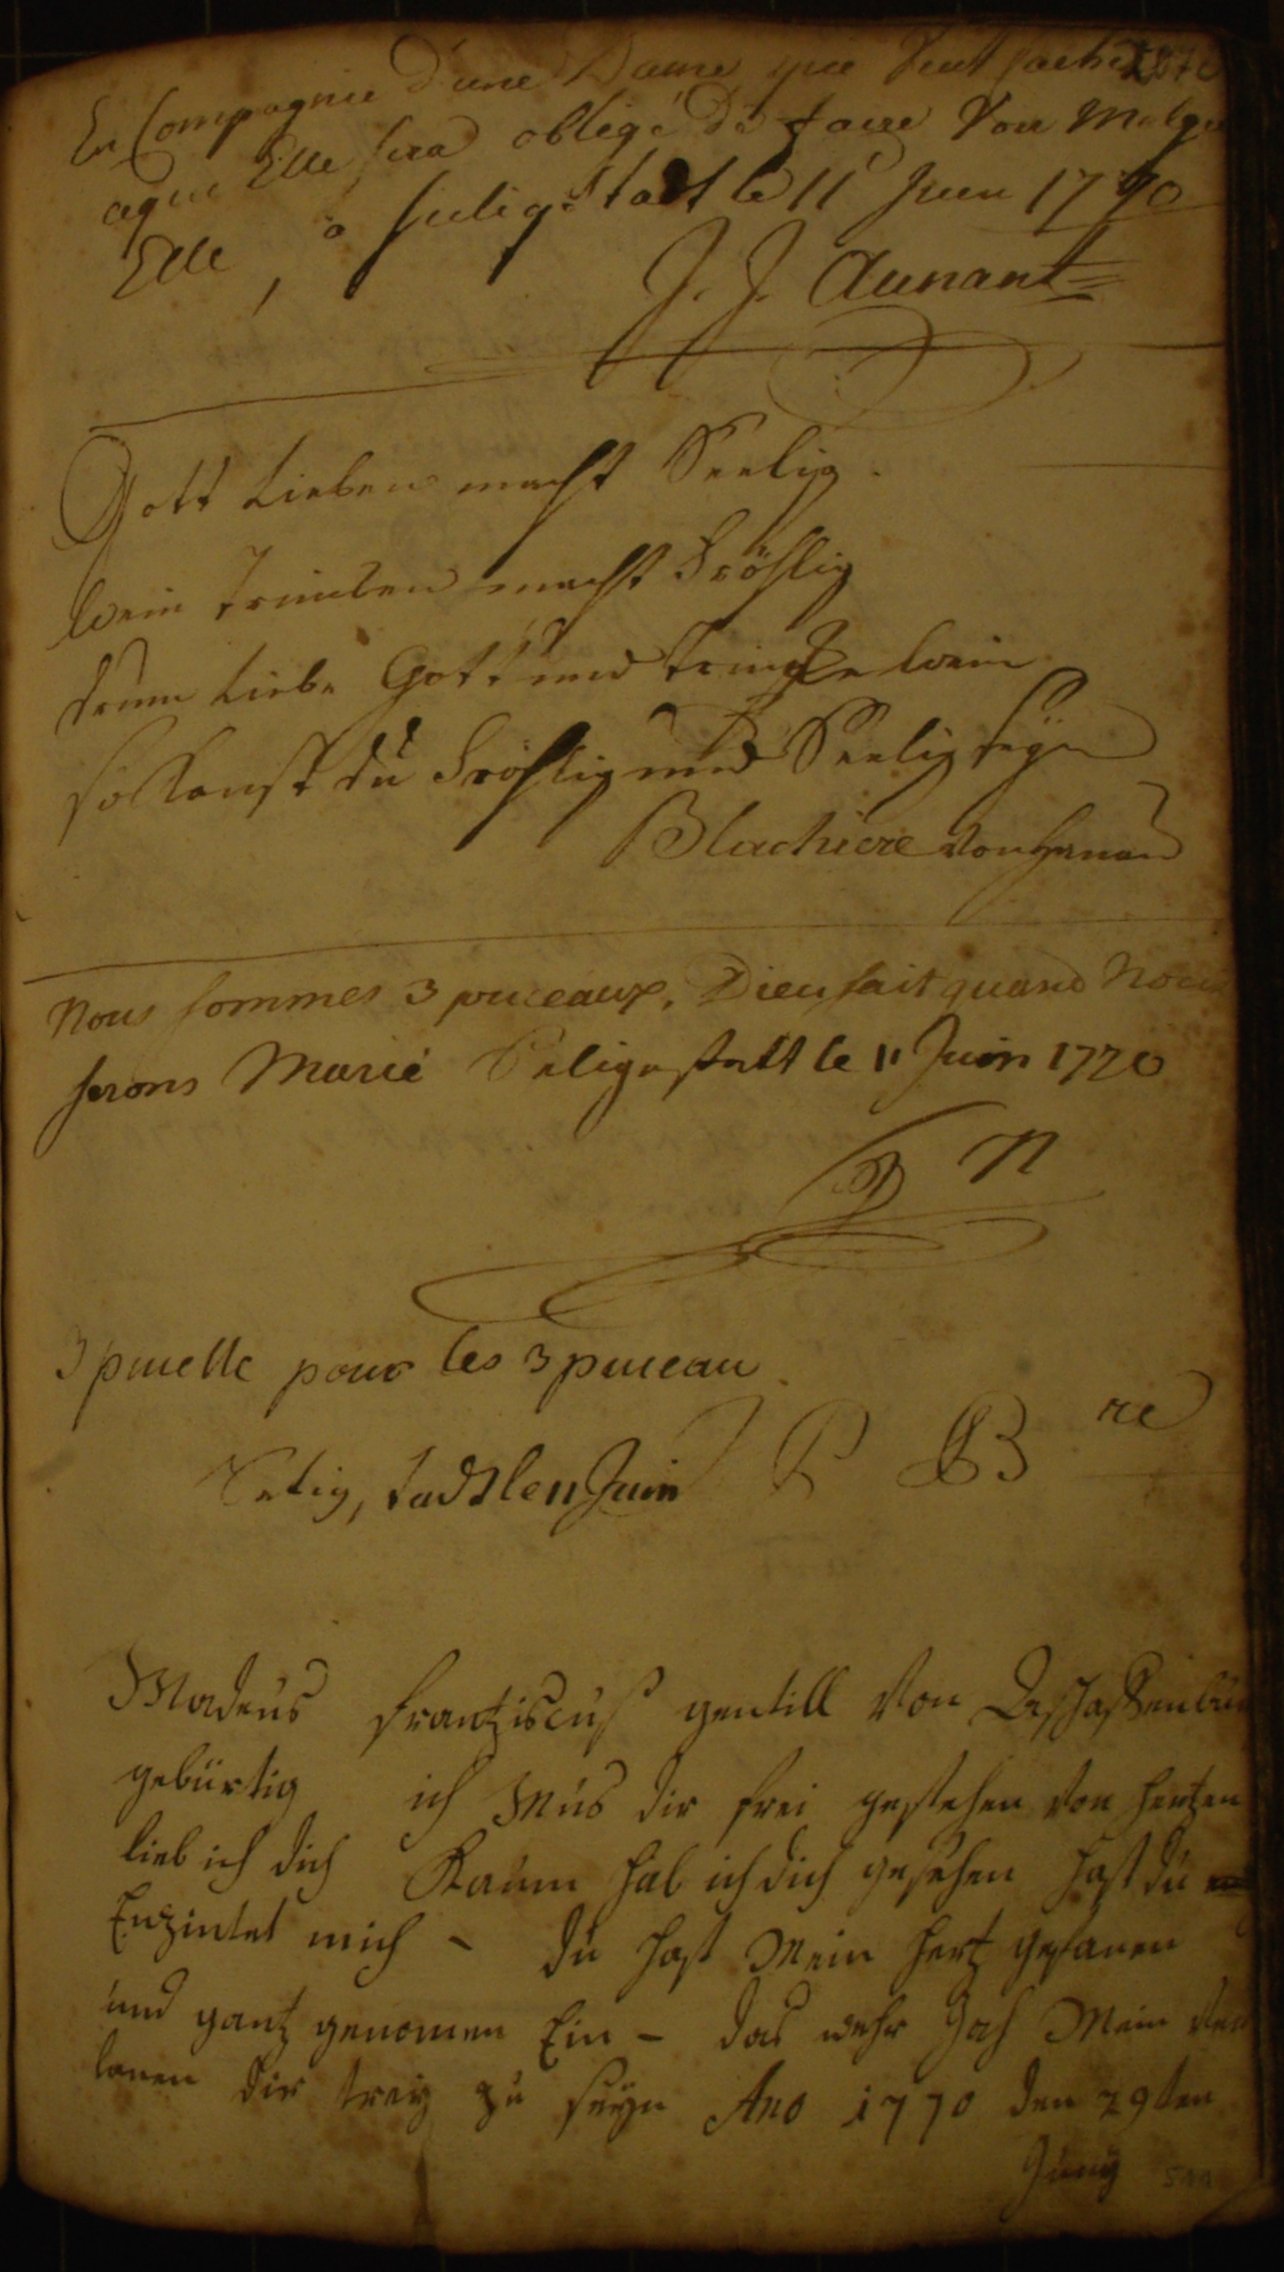 En Compagnie d'une Dame qui veut
aqui Elle sera obligé de faire Voir Malgre
Elle, a Seligstadt le 11 Juin 1770
J. J. Aunant
Gott Lieben macht Seelig.
Wein Trincken macht Fröhlig
drum Liebe Gott und Trincke Wein
so kanst du Fröhlig und Seelig seyn
Blachiere von Hanau
Nous sommes 3 puceaux, Dieu sait quand Nous
serons Marié Seligestatt le 11 Juin 1770
3 pucelle pour les 3 puceau
Selig,stadt le 11 Juin P B re
Madeus Frantziscus gentill Von Aschaffenbur
gebürtig ich Mus dir frei gestehen von Hertzen
lieb ich dich Kaum hab ich dich gesehen hast du
Enzintet mich – du hast Mein Hertz gefanen
und gantz genomen Ein – das wehr Jah Mein Ver
lanen dir trey zu seyn Ano 1770 den 29ten
Juny